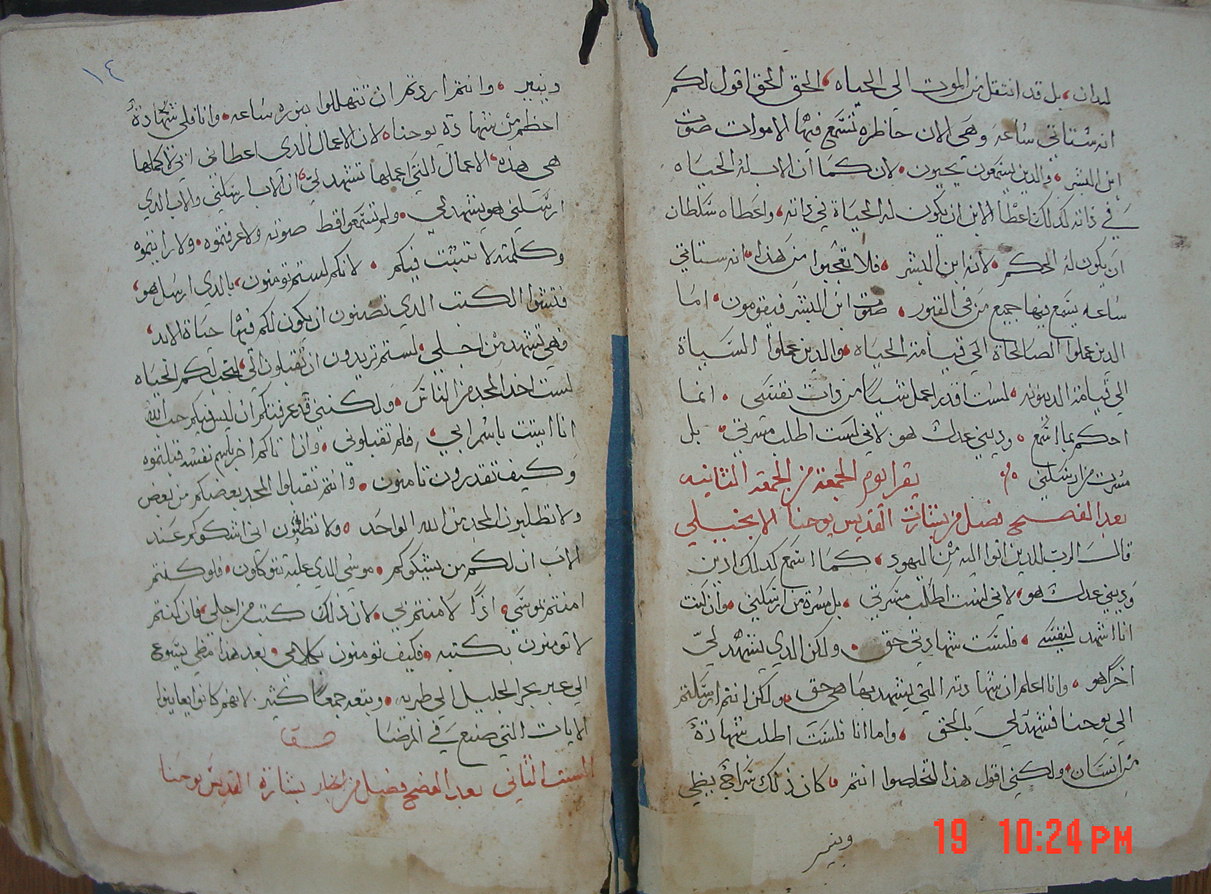 لمدان بل قد انتقل من الموت الي الحياه الحق الحق اقول لكم
انه ستاتي ساعه وهي الان حاظره تسمع فيها الاموات صوت
ابن البشر والدين يسمعون يحيون لان كما ان الاب له الحياه
في داته لدلك اعطا الابن ان يكون له الحياة في داته واعطاه سلطان
ان يكون له الحكم لانه ابن البشر فلا تعجبوا من هدا انه ستاتي
ساعه يسمع فيها جميع من في القبور صوت ابن البشر فيقومون اما
الدين عملوا الصالحاة الي قيامة الحياه والدين عملوا السياة
الي قيامة الدينونه لست اقدر اعمل شيا من دات نفسي انما
احكم بما اسمع وديني عدل هو لاني لست اطلب مسرتي بل
مسرت من ارسلني يقرا يوم الجمعة من الجمعة الثانيه
بعد الفصح فصل من بشارت القديس يوحنا الانجيلي
قال الرب للدين اتوا اليه من اليهود كما اسمع كدلك ادين
وديني عدل هو لاني لست اطلب مسرتي بل مسرة من ارسلني وان كنت
انا اشهد لنفسي فلست شهادتي حق ولكن الدي يشهد لي
اخر هو وانا اعلم ان شهادته التي يشهد بها هي حق ولكن انتم ارسلتم
الي يوحنا فشهد لي بالحق واما انا فلست اطلب شهادة
من انسان ولكني اقول هدا لتخلصوا انتم كان دلك سراج يظي
وينير
١٤
وينير وانتم اردتم ان تتهللوا بنوره ساعه وانا فلي شهادة
اعظم من شهادة يوحنا لان الاعمال الدي اعطاني ابي لاكملها
هي هده الاعمال التي اعملها تشهد لي ان الاب ارسلني والاب الدي
ارسلني هو يشهد لي ولم تسمعوا قط صوته ولا عرفتموه ولا رايتموه
وكلمته لا تتبت فيكم لانكم لستم تومنون بالدي ارسل هو
فتشوا الكتب الدي تضنون ان يكون لكم فيها حياة الابد
فهي تشهد من اجلي لستم تريدون ان تقبلوا الي لتجب لكم الحياه
لست اخد المجد من الناس ولكنني قد عرفتكم ان ليس فيكم حب الله
انا اتيت باسم ابي فلم تقبلوني وادا اتاكم اخر باسم نفسه قبلتموه
وكيف تقدرون تامنون وانتم تقبلوا المجد بعضكم من بعض
ولا تطلبون المجد من الله الواحد ولا تظنون اني اشكوكم عند
الاب ان لكم من يشكوكم موسي الدي عليه تتوكلون فلو كنتم
امنتم بموسي ادا لامنتم بي لان داك كتب من اجلي فان كنتم
لا تومنون بكتبه فكيف تومنون بكلامي بعد هدا مظي يسوع
الي عبر بحر الجليل الي طبريه وتبعه جمعا كثير لانهم كانوا يعاينوا
الايات التي صنع في المرضا
السبت الثاني بعد الفصح فصل من بشارة القديس يوحنا
19 10:24 PM